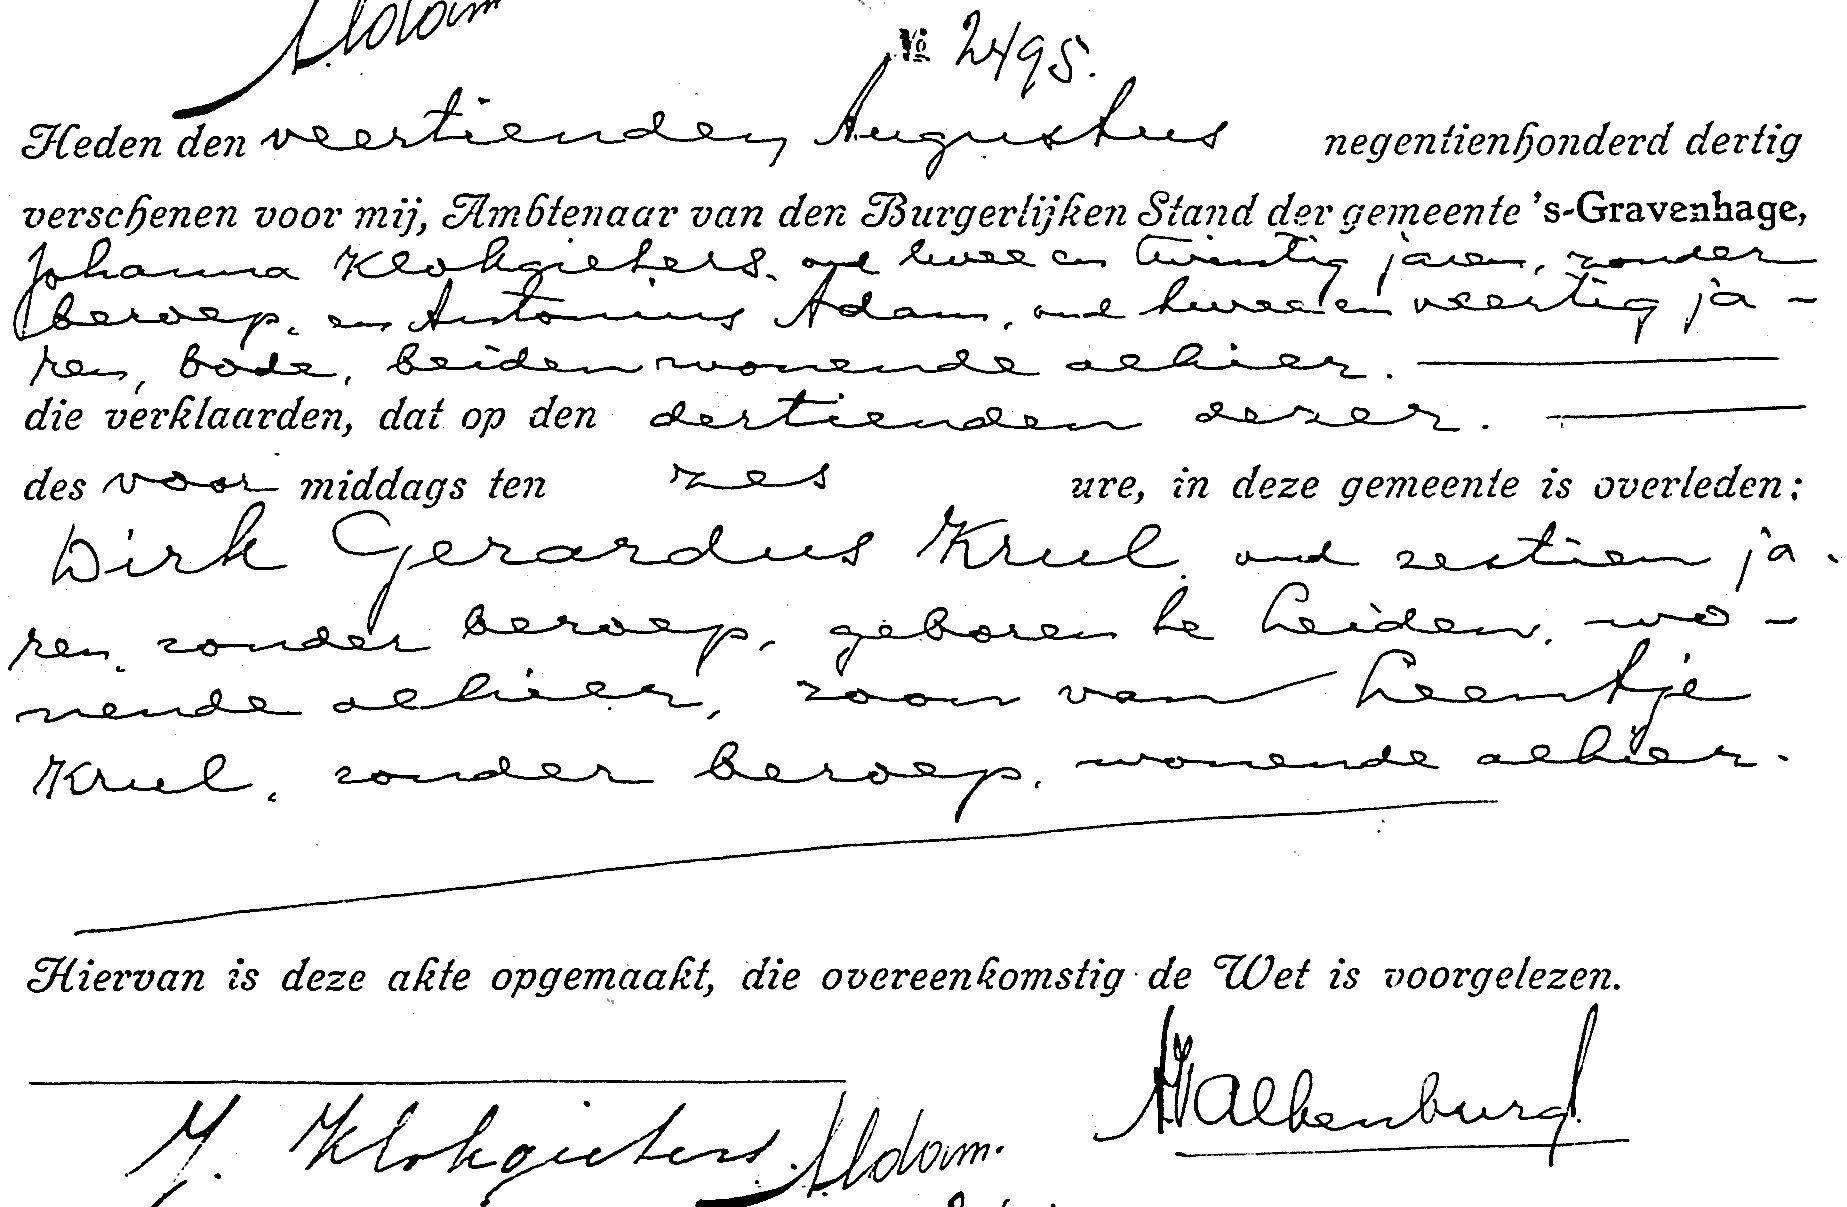 Adam
№ 2495.
Heden den veertienden Augustus negentienhonderd dertig
verschenen voor mij, Ambtenaar van den Burgerlijken Stand der gemeente 's-Gravenhage,
Johanna Klokgieters, oud twee en twintig jaren, zonder
beroep, en Antonius Adam, oud twee en veertig ja-
ren, bode, beiden wonende alhier.
die verklaarden, dat op den dertienden dezer.
des voor middags ten zes ure, in deze gemeente is overleden:
Dirk Gerardus Krul, oud zestien ja-
ren, zonder beroep, geboren te Leiden, wo-
nende alhier, zoon van Leentje
Krul, zonder beroep, wonende alhier.
Hiervan is deze akte opgemaakt, die overeenkomstig de Wet is voorgelezen.
J. Klokgieters. A. Adam. AValkenburg